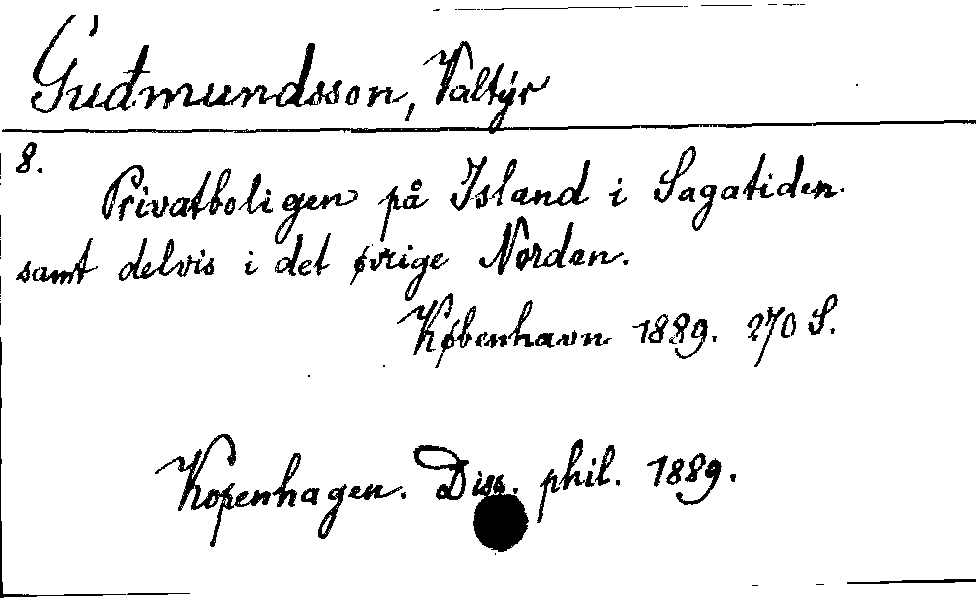 Guđmundsson, Valtýr
8.
Privatboligen på Island i Sagatiden
samt delvis i det øvrige Norden.
København 1889. 270 S.
Kopenhagen. Diss. phil. 1889.